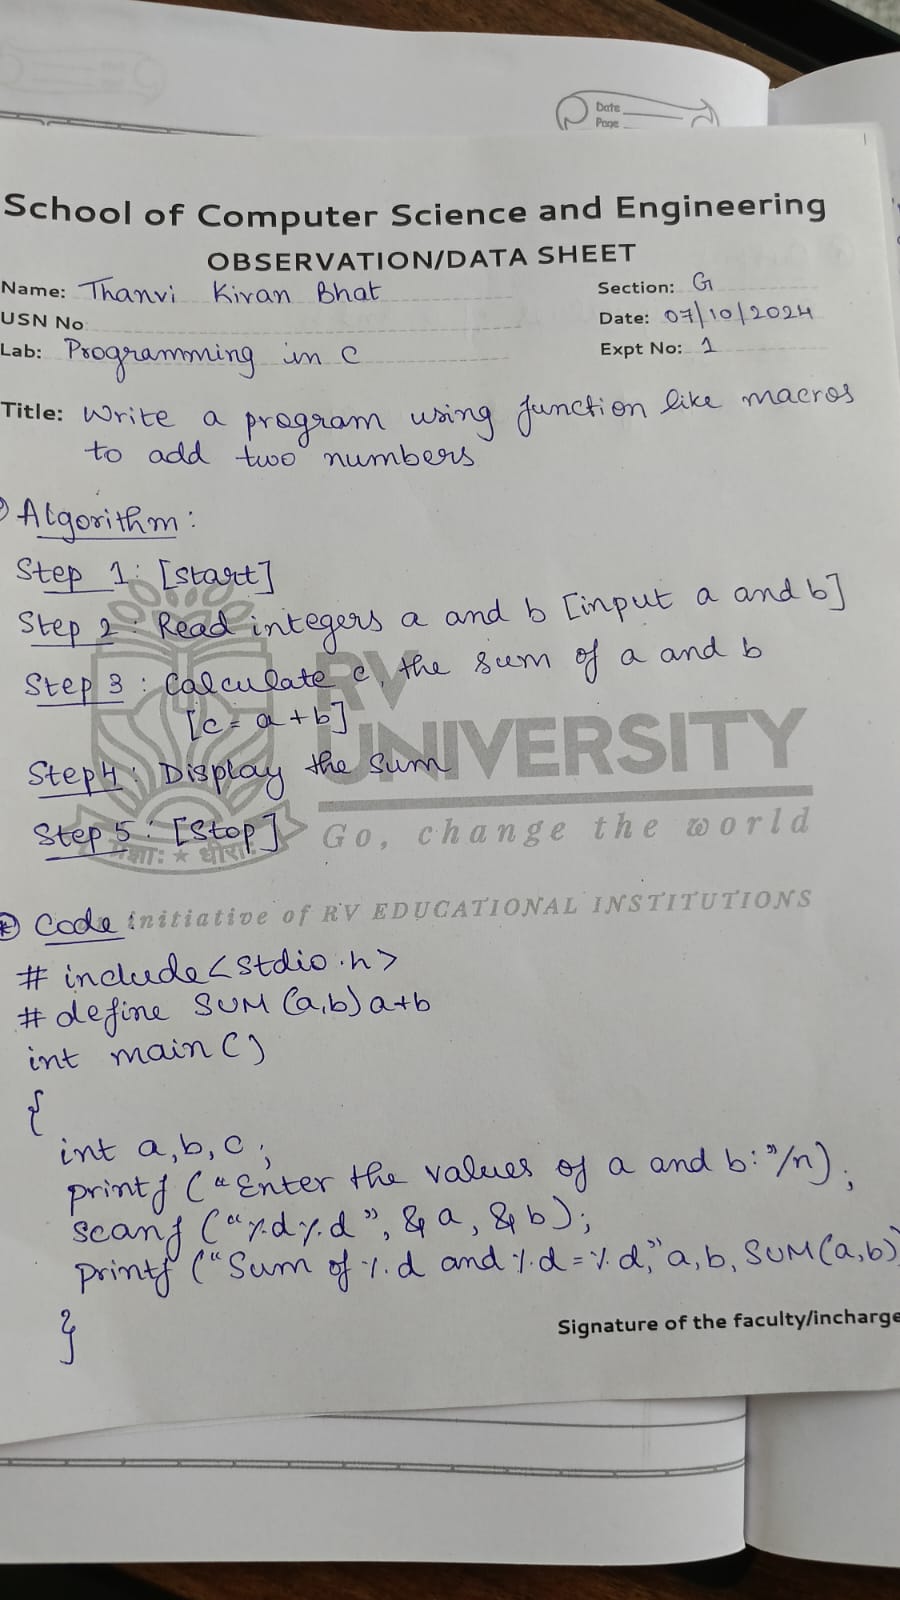 Date
Page
School of Computer Science and Engineering
OBSERVATION/DATA SHEET
Name: Thanvi Kiran Bhat Section: G
USN No: Date: 07/10/2024
Lab: Programming in C Expt No: 1
Title: Write a program using function like macros
to add two numbers
Algorithm:
Step 1: [start]
Step 2: Read integers a and b [input a and b]
Step 3: Calculate c, the sum of a and b
[c = a+b]
Step 4: Display the sum
Step 5: [Stop]
RV
UNIVERSITY
Go, change the world
धीराः
initiative of RV EDUCATIONAL INSTITUTIONS
Code
# include<stdio.h>
# define SUM (a,b) a+b
int main()
{
int a,b,c;
printf ("Enter the values of a and b:"/n);
scanf ("%d%d", &a, &b);
printf ("Sum of %d and %d=%d," a,b, SUM(a,b)
}
Signature of the faculty/incharge